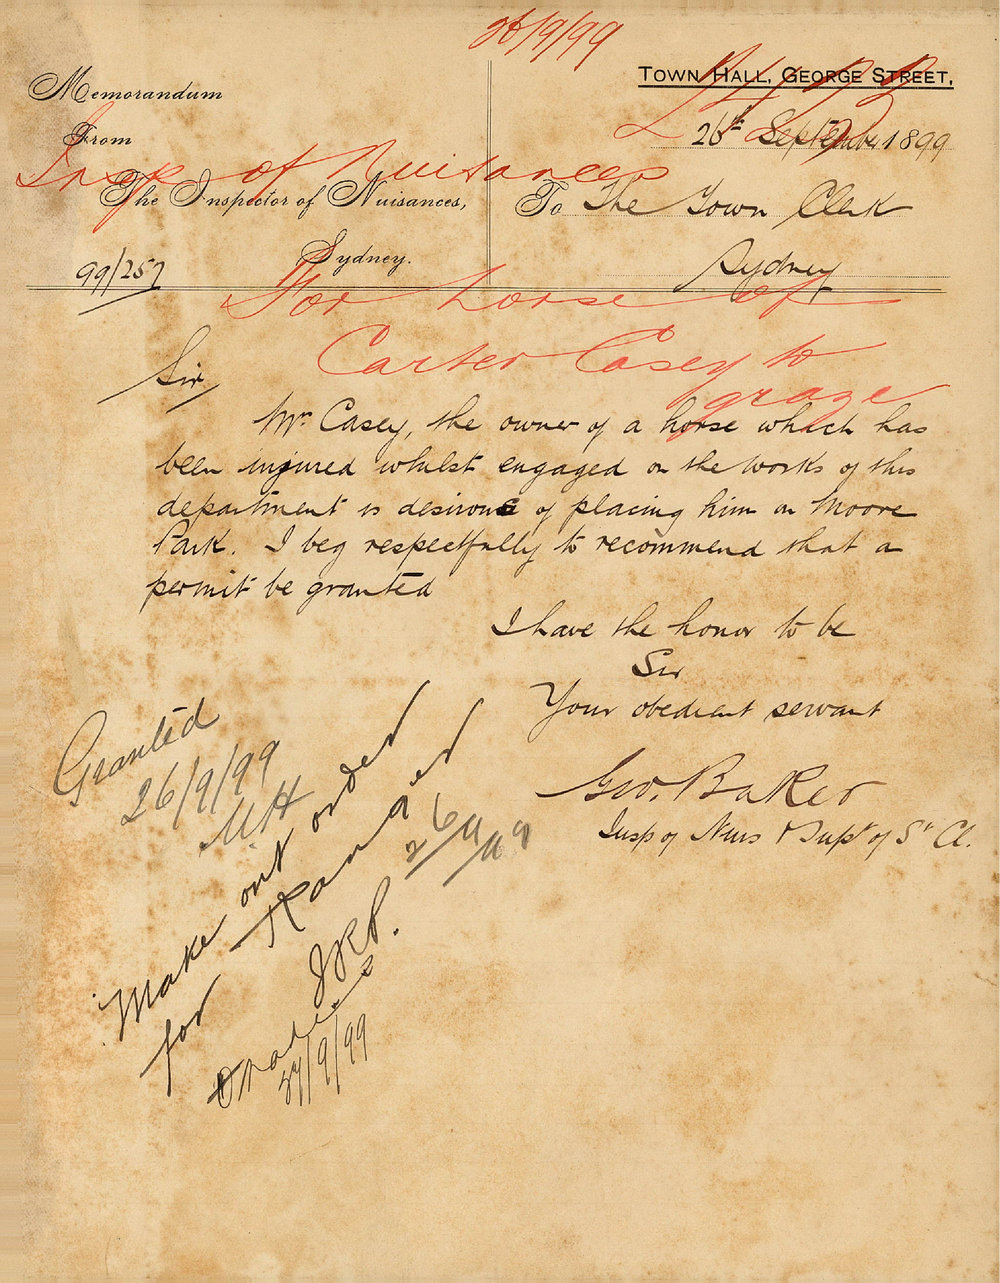 26/9/99
Town Hall, George Street.
Memorandum
From
26th September 1899
Insp of Nuisances
The Inspector of Nuisances,
To The Town Clerk
Sydney.
Sydney
99/257
For horse of
Carter Casey to
graze
Sir,
Mr. Casey, the owner of a horse which has
been injured whilst engaged on the works of this
department is desirous of placing him on Moore
Park. I beg respectfully to recommend that a
permit be granted
I have the honor to be
Sir
Your obedient servant
Geo. Baker
Insp of Nuis & Supt of St Cl.
Granted
26/9/99
MH
Make out order
for Ranger
JRP.
26/9/99
27/9/99